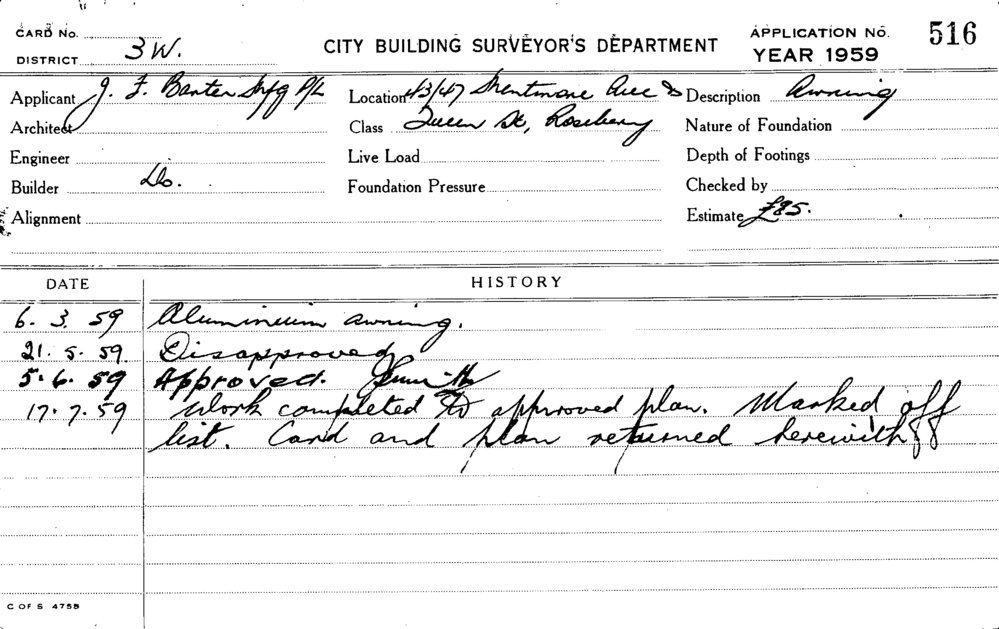 CARD No.
DISTRICT 3 W.
CITY BUILDING SURVEYOR'S DEPARTMENT
APPLICATION No. 516
YEAR 1959
Applicant J. F. Baxter Mfg P/L
Location 43/47 Mentmore Ave &
Description Awning
Architect
Class Queen St, Rosebery
Nature of Foundation
Engineer
Live Load
Depth of Footings
Builder Do.
Foundation Pressure
Checked by
Alignment
Estimate £85.
DATE HISTORY
6. 3. 59 Aluminium awning.
21. 5. 59. Disapproved
5. 6. 59 Approved.
17. 7. 59 Work completed to approved plan. Marked off
list. Card and plan returned herewith
C OF S 475B